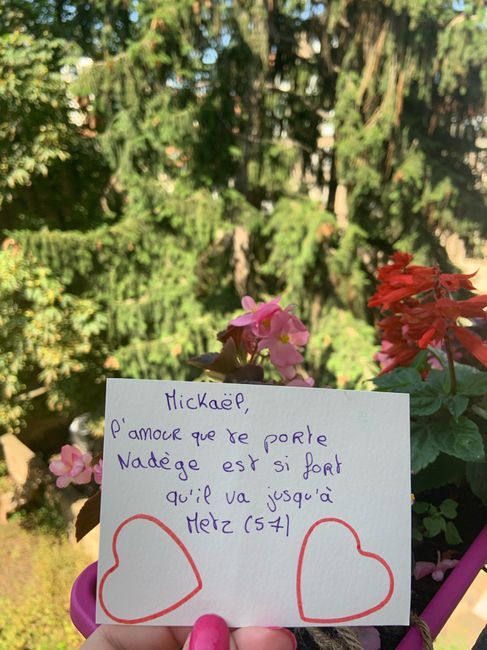 Mickaël,
l'amour que te porte
Nadège est si fort
qu'il va jusqu'à
Metz (57)